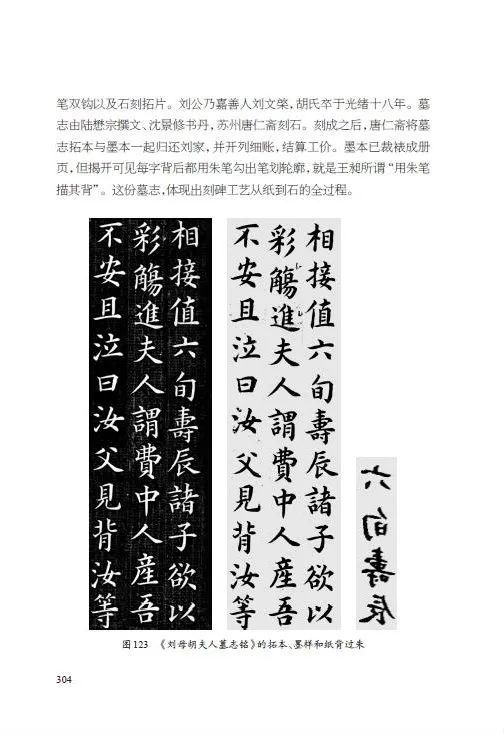 笔双钩以及石刻拓片。刘公乃嘉善人刘文棨，胡氏卒于光绪十八年。墓
志由陆懋宗撰文、沈景修书丹，苏州唐仁斋刻石。刻成之后，唐仁斋将墓
志拓本与墨本一起归还刘家，并开列细账，结算工价。墨本已裁裱成册
页，但揭开可见每字背后都用朱笔勾出笔划轮廓，就是王昶所谓“用朱笔
描其背”。这份墓志，体现出刻碑工艺从纸到石的全过程。
相接值六旬壽辰諸子欲以
彩觴進夫人謂費中人產吾
不安且泣曰汝父見背汝等
相接值六旬壽辰諸子欲以
彩觴進夫人謂費中人產吾
不安且泣曰汝父見背汝等
六旬壽辰
图123　《刘母胡夫人墓志铭》的拓本、墨样和纸背过朱
304